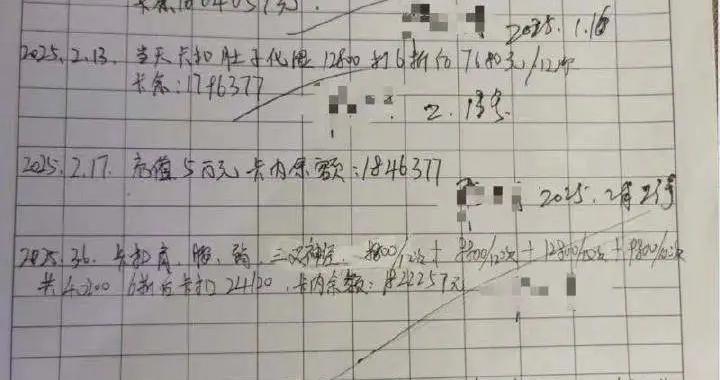 卡余1804057元
2025.1.16
2025.2.13. 当天卡扣肚子化湿12800打6折后7680元/12次
卡余:1796377
2.13号
2025.2.17. 充值5万元 卡内余额:1846377
2025.2月21号
2025.3.6. 卡扣肩、腰、 三叉神经 8800/12次+8800/12次+12800/12次+9800/12次
共40200 6折后卡扣24120 卡内余额:1822257元